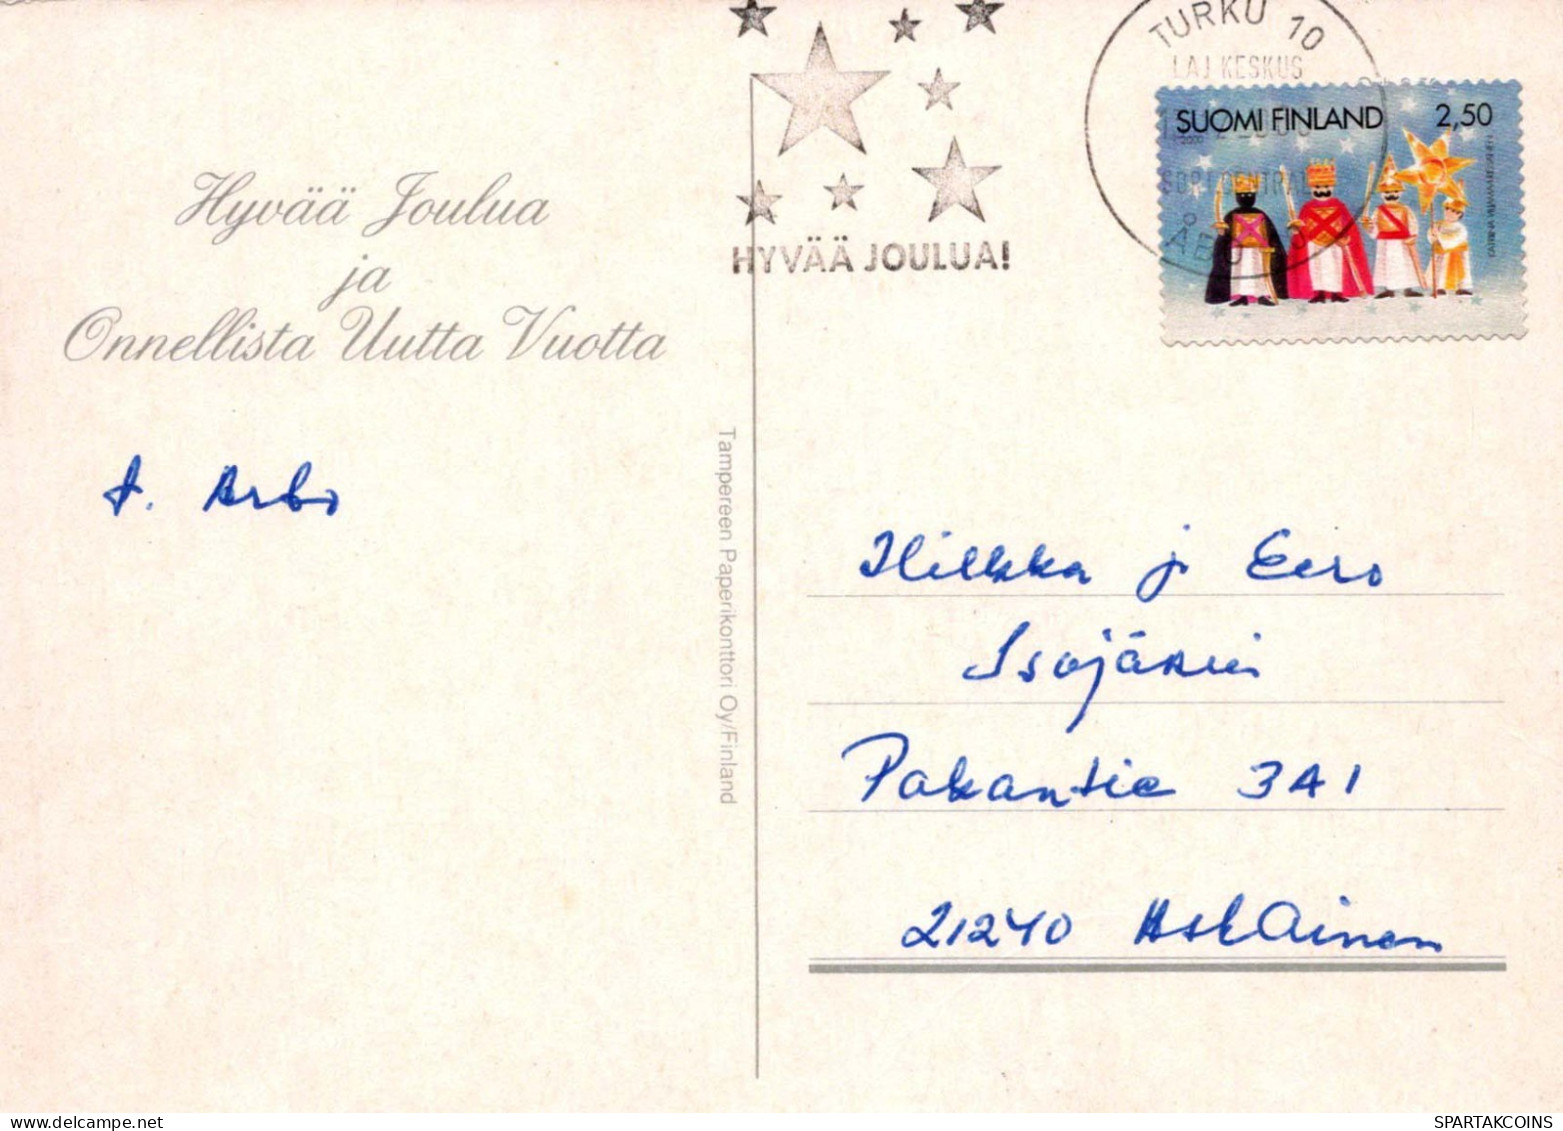 Hyvää Joulua
ja
Onnellista Uutta Vuotta
HYVÄÄ JOULUA!
TURKU 10
LAJ KESKUS
ÅBO 10
SUOMI FINLAND 2,50
2000
A. Arbo
Tampereen Paperikonttori Oy/Finland
Hilkka j. Eero
Isojärvi
Pakantie 3A1
21240 Askainen
delcampe.net
SPARTAKCOINS